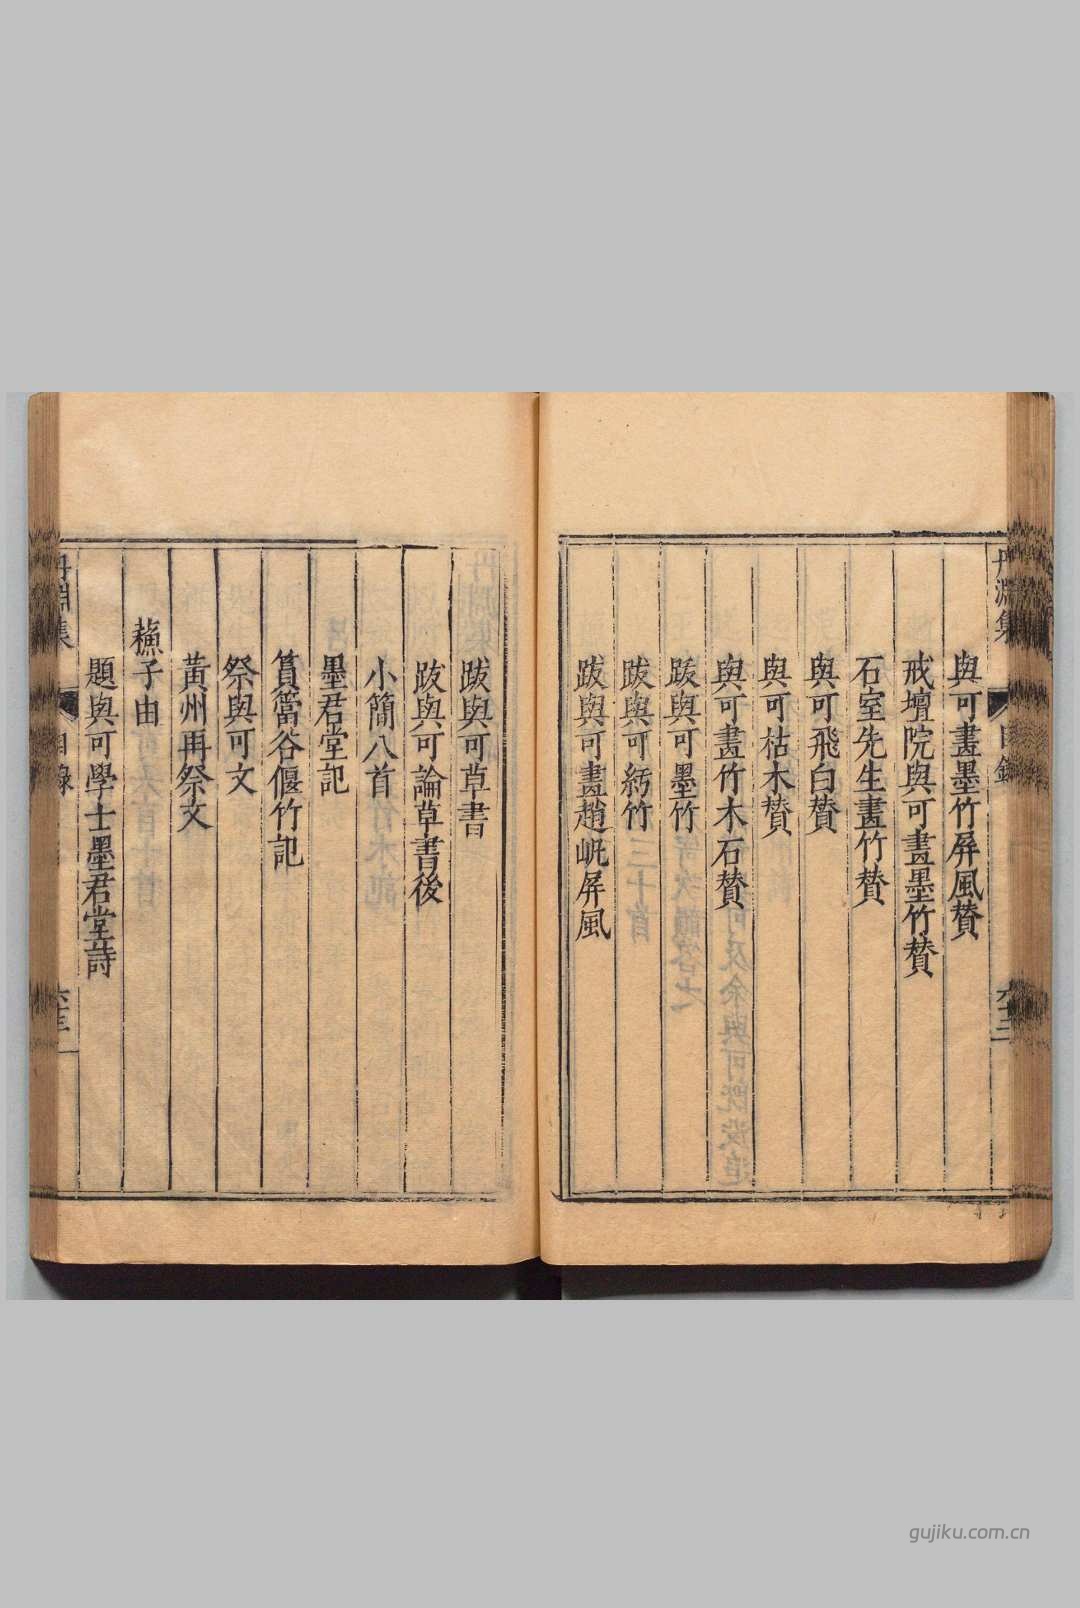 丹淵集 目錄 六十三
與可畫墨竹屏風贊
戒壇院與可畫墨竹贊
石室先生畫竹贊
與可飛白贊
與可枯木贊
與可畫竹木石贊
跋與可墨竹
跋與可紆竹
跋與可畫趙屼屏風
跋與可草書
跋與可論草書後
小簡八首
墨君堂記
篔簹谷偃竹記
祭與可文
黃州再祭文
蘇子由
題與可學士墨君堂詩
丹淵集 目錄
gujiku.com.cn